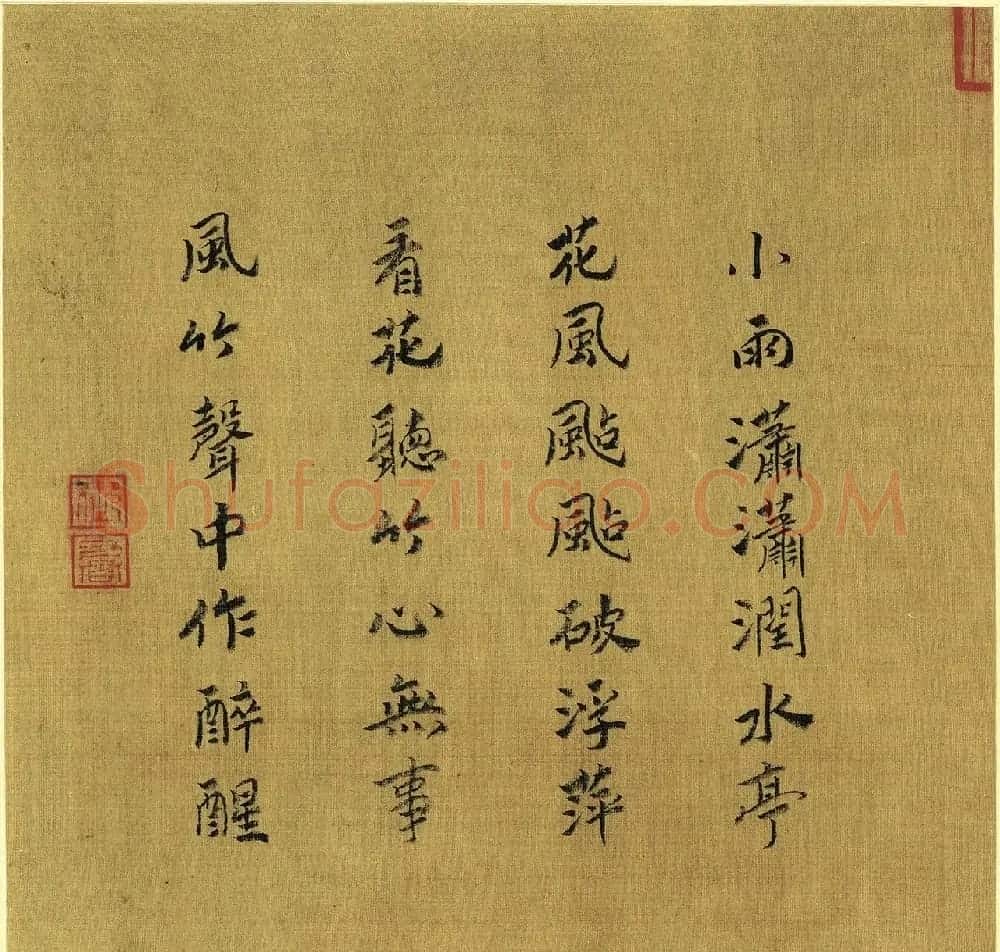 小雨瀟瀟潤水亭
花風颭颭破浮萍
看花聽竹心無事
風竹聲中作醉醒
Shufaziliao.COM